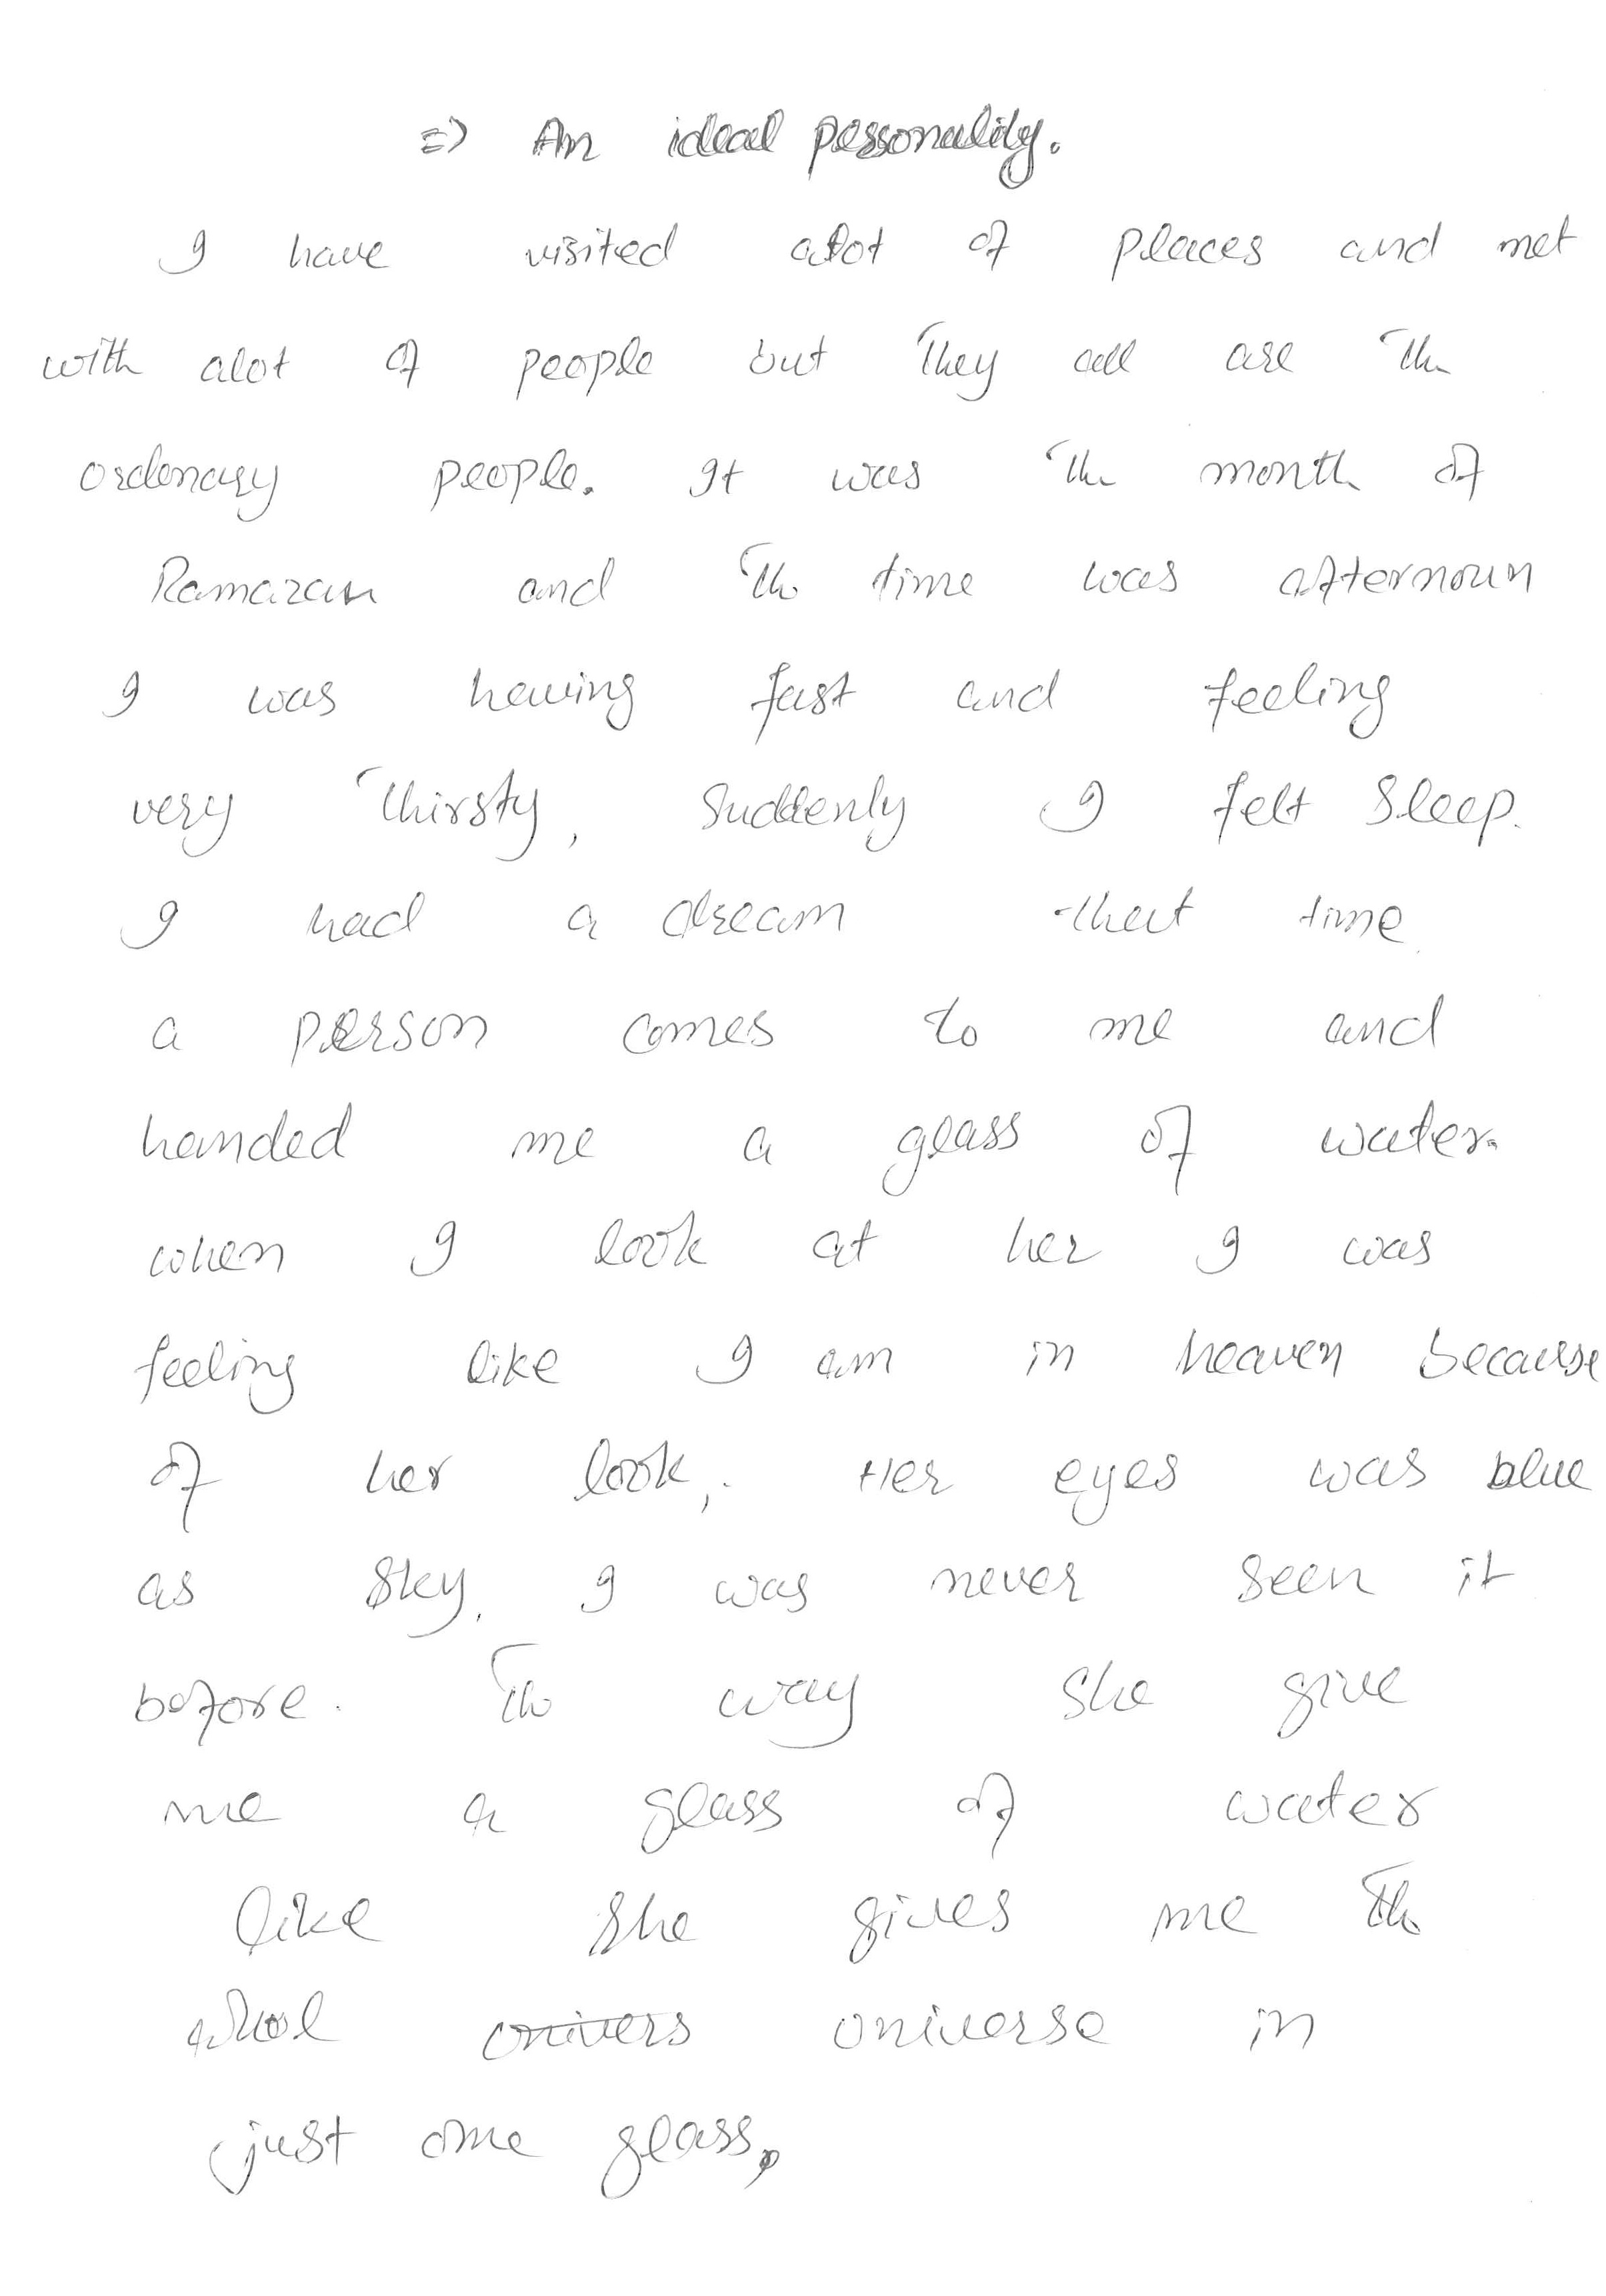 => An ideal personality.
I have visited alot of places and met
with alot of people but they all are the
ordenary people. It was the month of
Ramazan and the time was afternoun
I was having fast and feeling
very thirsty, Suddenly I felt sleep.
I had a dream that time
a person comes to me and
handed me a glass of water.
when I look at her I was
feeling like I am in heaven because
of her look,. Her eyes was blue
as sky. I was never seen it
before. The way she give
me a glass of water
like she gives me the
whol onivers oniverse in
just one glass,